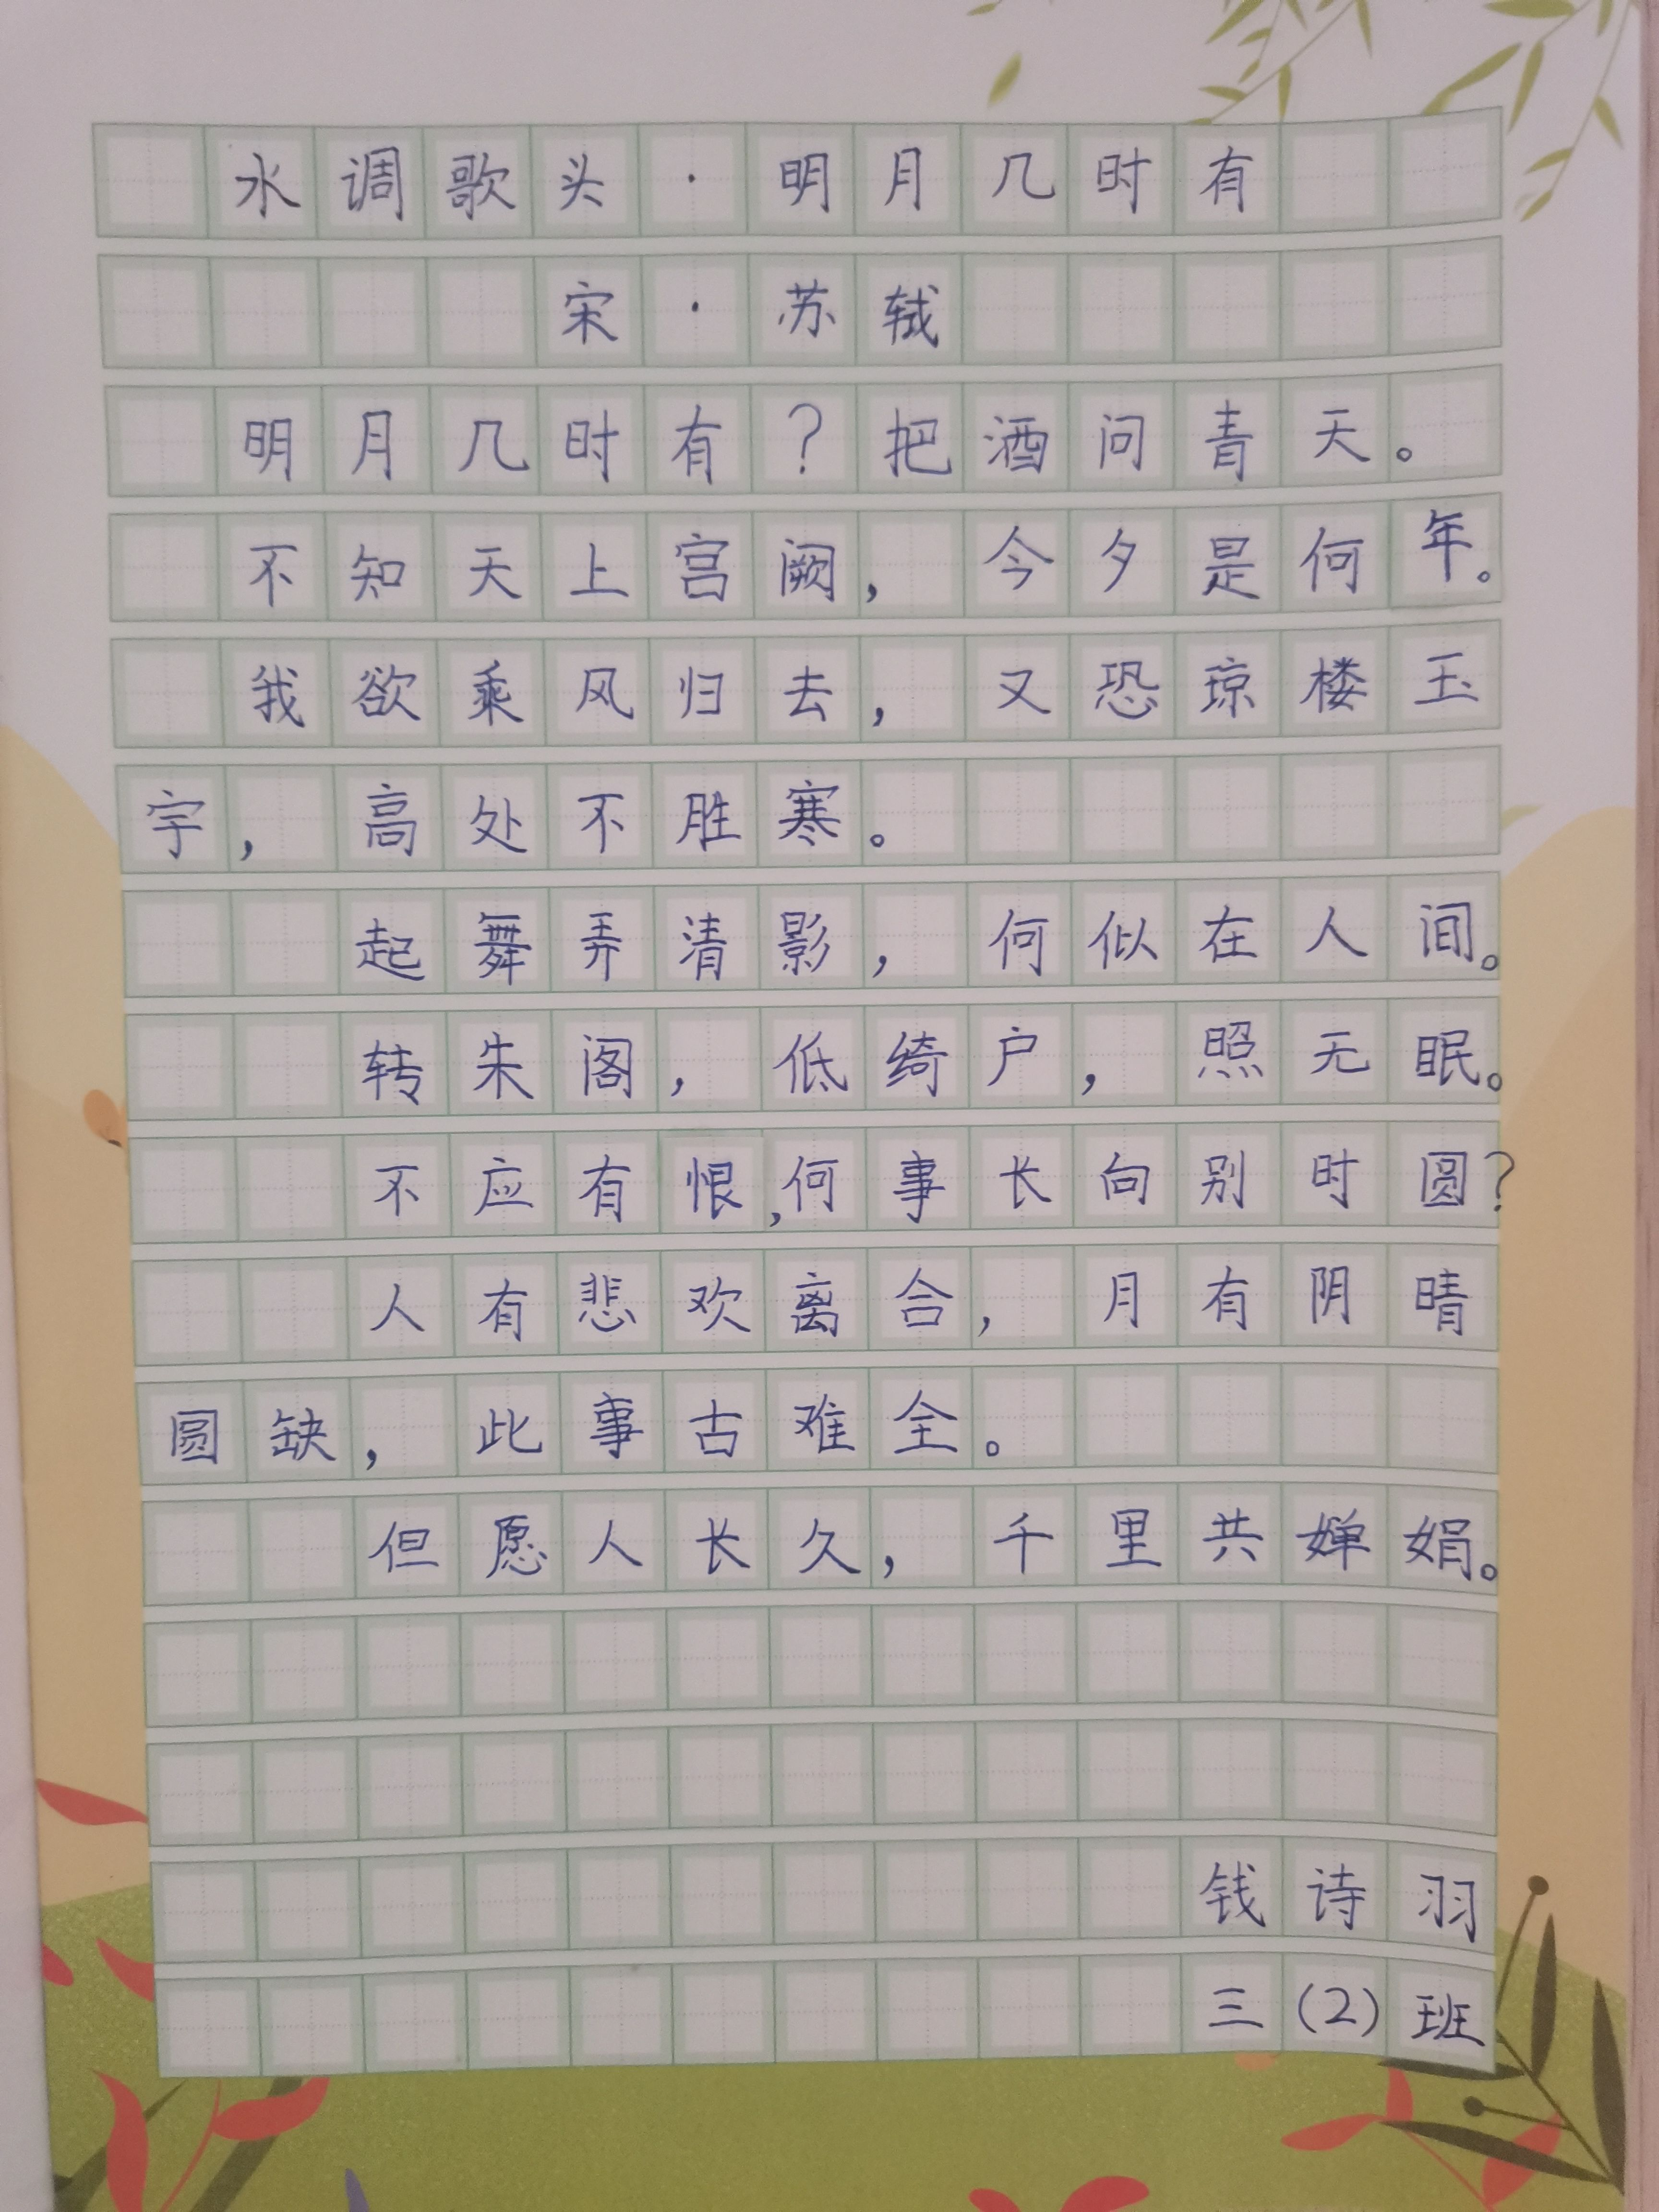 水调歌头·明月几时有
宋·苏轼
明月几时有？把酒问青天。
不知天上宫阙，今夕是何年。
我欲乘风归去，又恐琼楼玉
宇，高处不胜寒。
起舞弄清影，何似在人间。
转朱阁，低绮户，照无眠。
不应有恨，何事长向别时圆？
人有悲欢离合，月有阴晴
圆缺，此事古难全。
但愿人长久，千里共婵娟。
钱诗羽
三（2）班